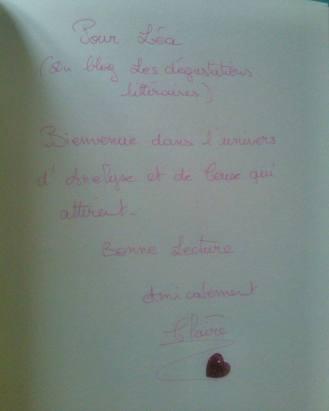 Pour Léa
(du blog des dégustations
littéraires)
Bienvenue dans l'univers
d'Anelyse et de Ceux qui
attirent.
Bonne Lecture
Amicalement
Claire